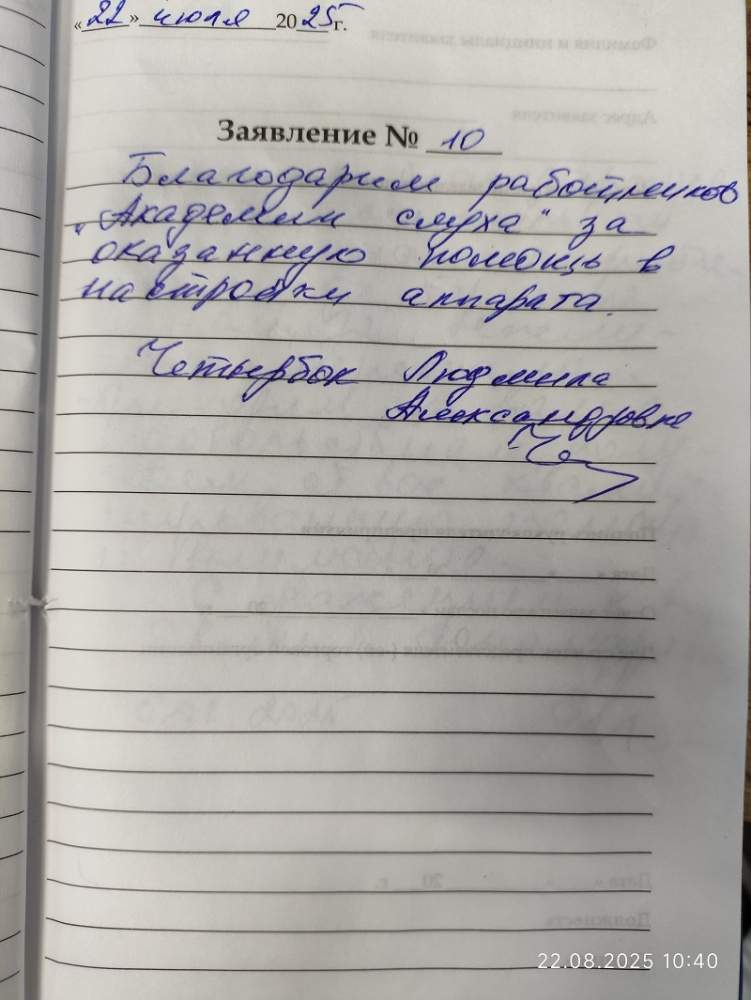 «22» июля 2025 г.
Заявление № 10
Благодарим работников
"Академии слуха" за
оказанную помощь в
настройки аппарата.
Четырбок Людмила
Александровна
22.08.2025 10:40